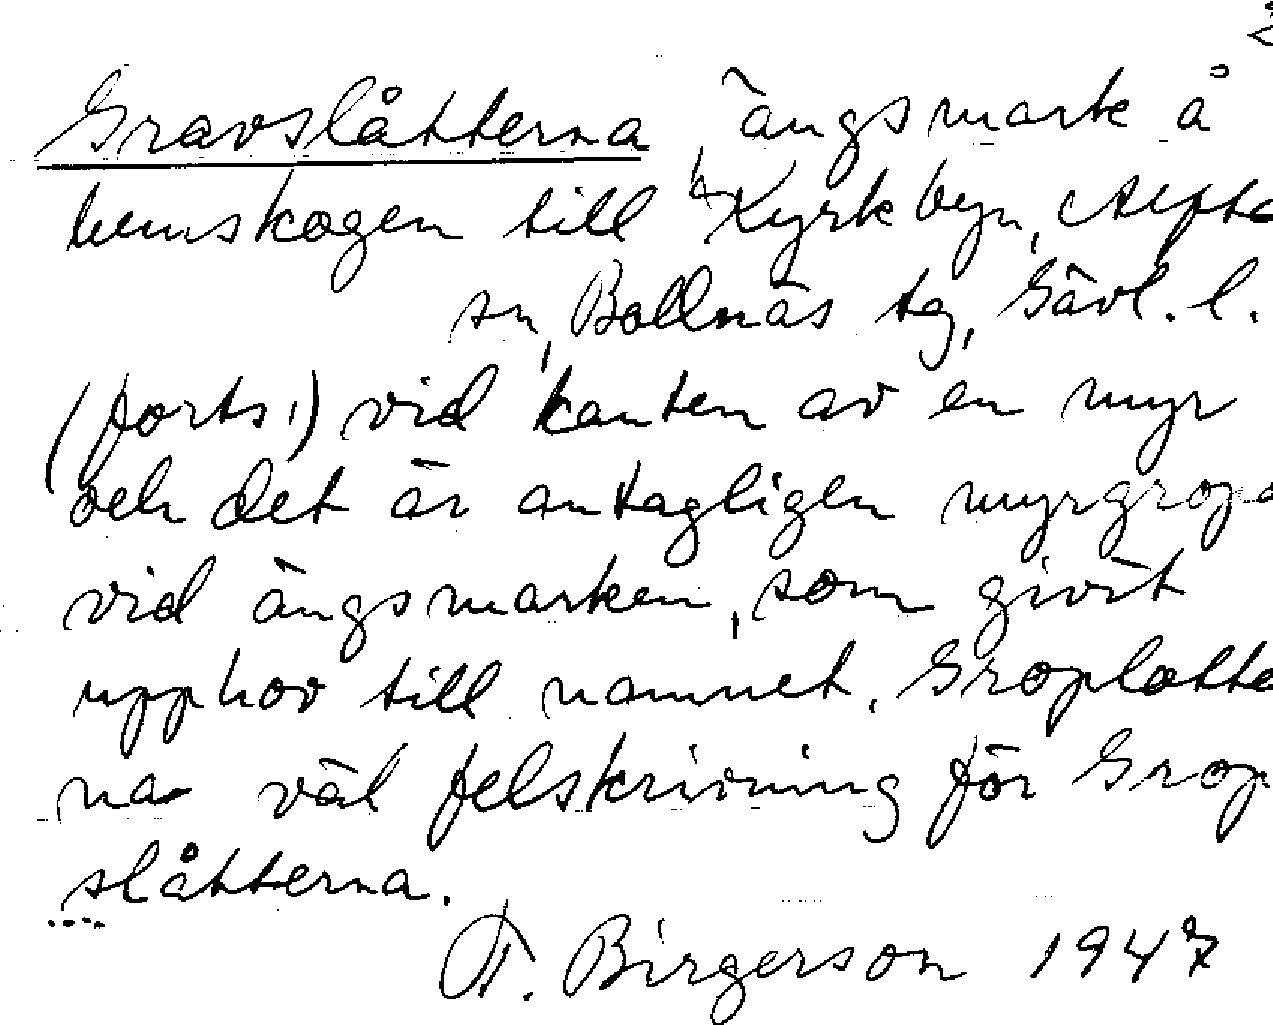 Gravslåtterna, ängsmark å
hemskogen till Kyrkbyn, Alfta
sn, Bollnäs tg, Gävl. l.
(forts.) vid kanten av en myr
och det är antagligen myrgropa
vid ängsmarken, som givit
upphov till namnet. Groplotte
na väl felskrivning för Grop
slåtterna.
F. Birgerson 1947